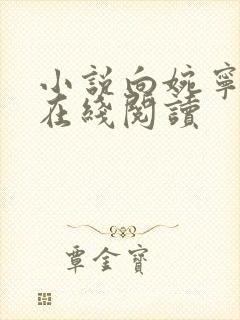 小説向婉寧
在綫閱讀
覃金寶